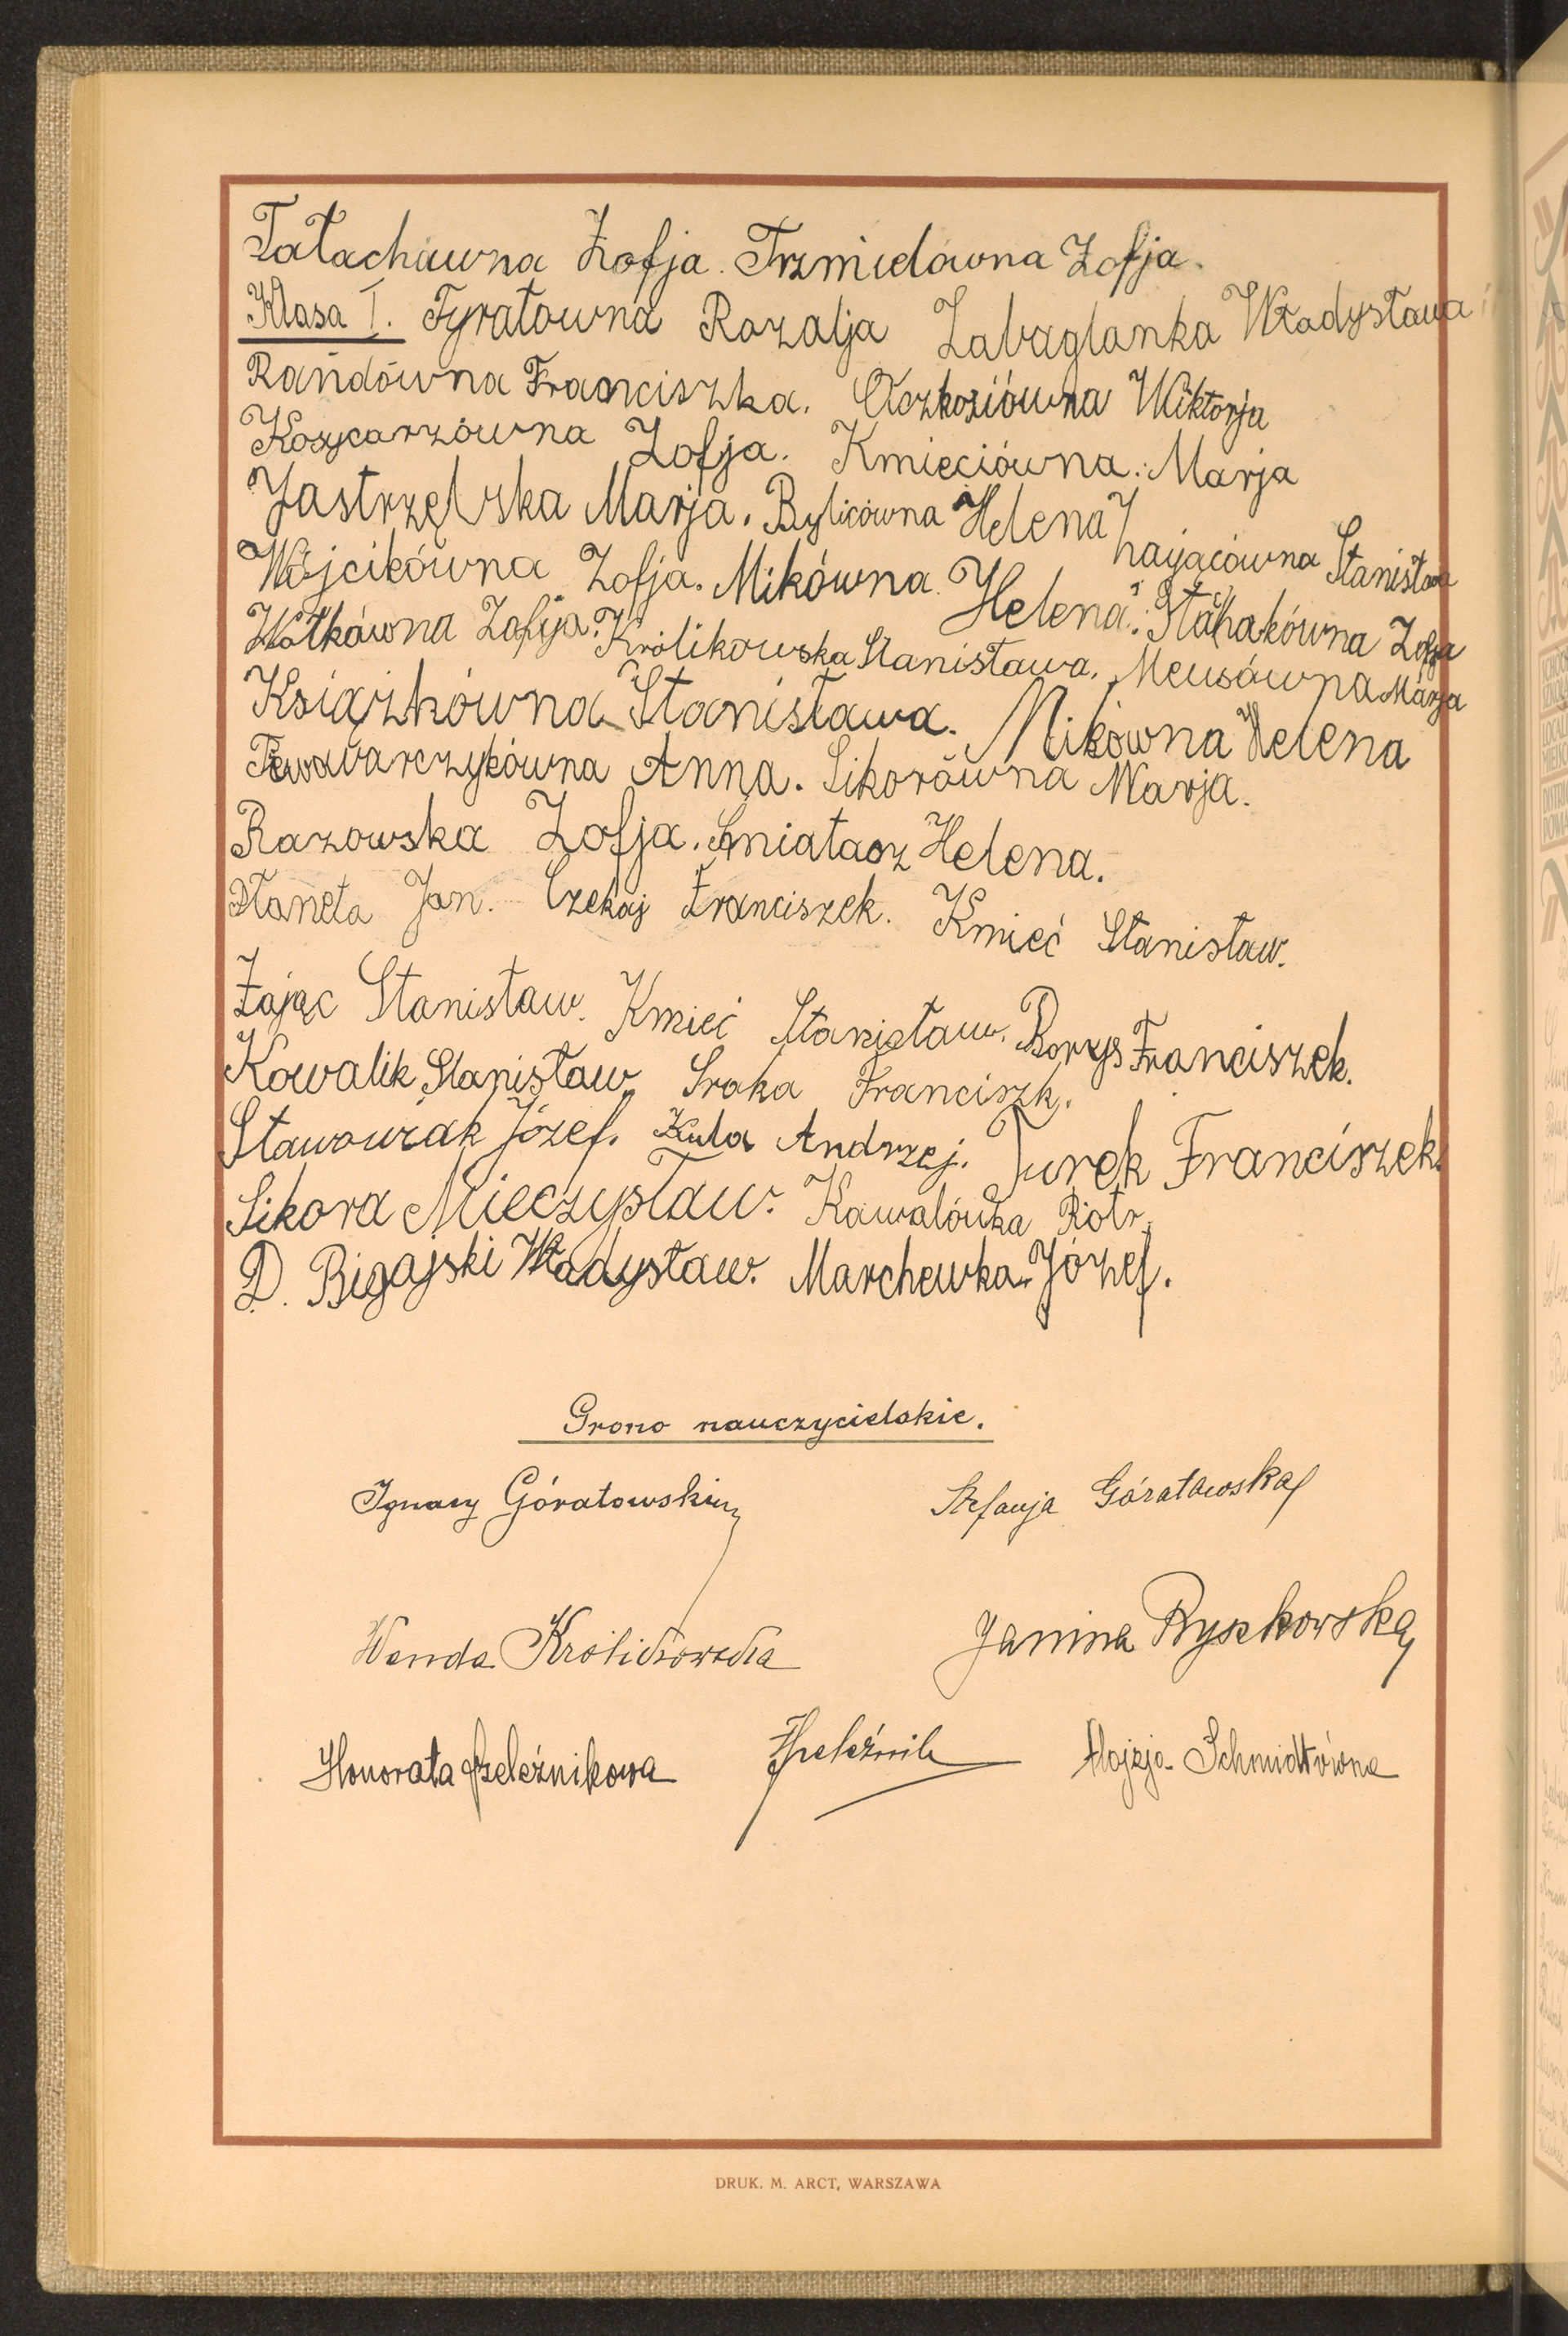 Tałachówna Zofja. Trzmielówna Zofja.
Klasa I. Tyrałówna Rozalja Zabraglanka Władysława
Rańdówna Franciszka. Oczkosiówna Wiktorja
Kosycarzówna Zofja. Kmieciówna. Marja
Jastrzębska Marja. Bylicówna Helena Zającówna Stanisława
Wójcikówna Zofja. Mikówna. Helena. Stachakówna Zofja
Wółkówna Zofija. Królikowska Stanisława. Meusówna Marja
Książkówna Stanisława. Mikówna Helena
Anna. Sikorówna Marja.
Razowska Zofja. Helena.
Płaneta Jan. Czekaj Franciszek. Kmieć Stanisław.
Zając Stanisław. Kmieć Stanisław. Borys Franciszek.
Kowalik Stanisław. Sroka Franciszk.
Stawowiak Józef. Kula Andrzej. Turek Franciszek.
Sikora Mieczysław. Kawalówka Piotr.
D. Bigajski Władysław. Marchewka Józef.
Grono nauczycielskie.
Ignacy Górałowski Stefanja Górałowska
Wanda Królikowska Janina Ryszkowska
Honorata Żeleźnikowa Żeleźnik Alojzja Schmidtówna
DRUK. M. ARCT, WARSZAWA